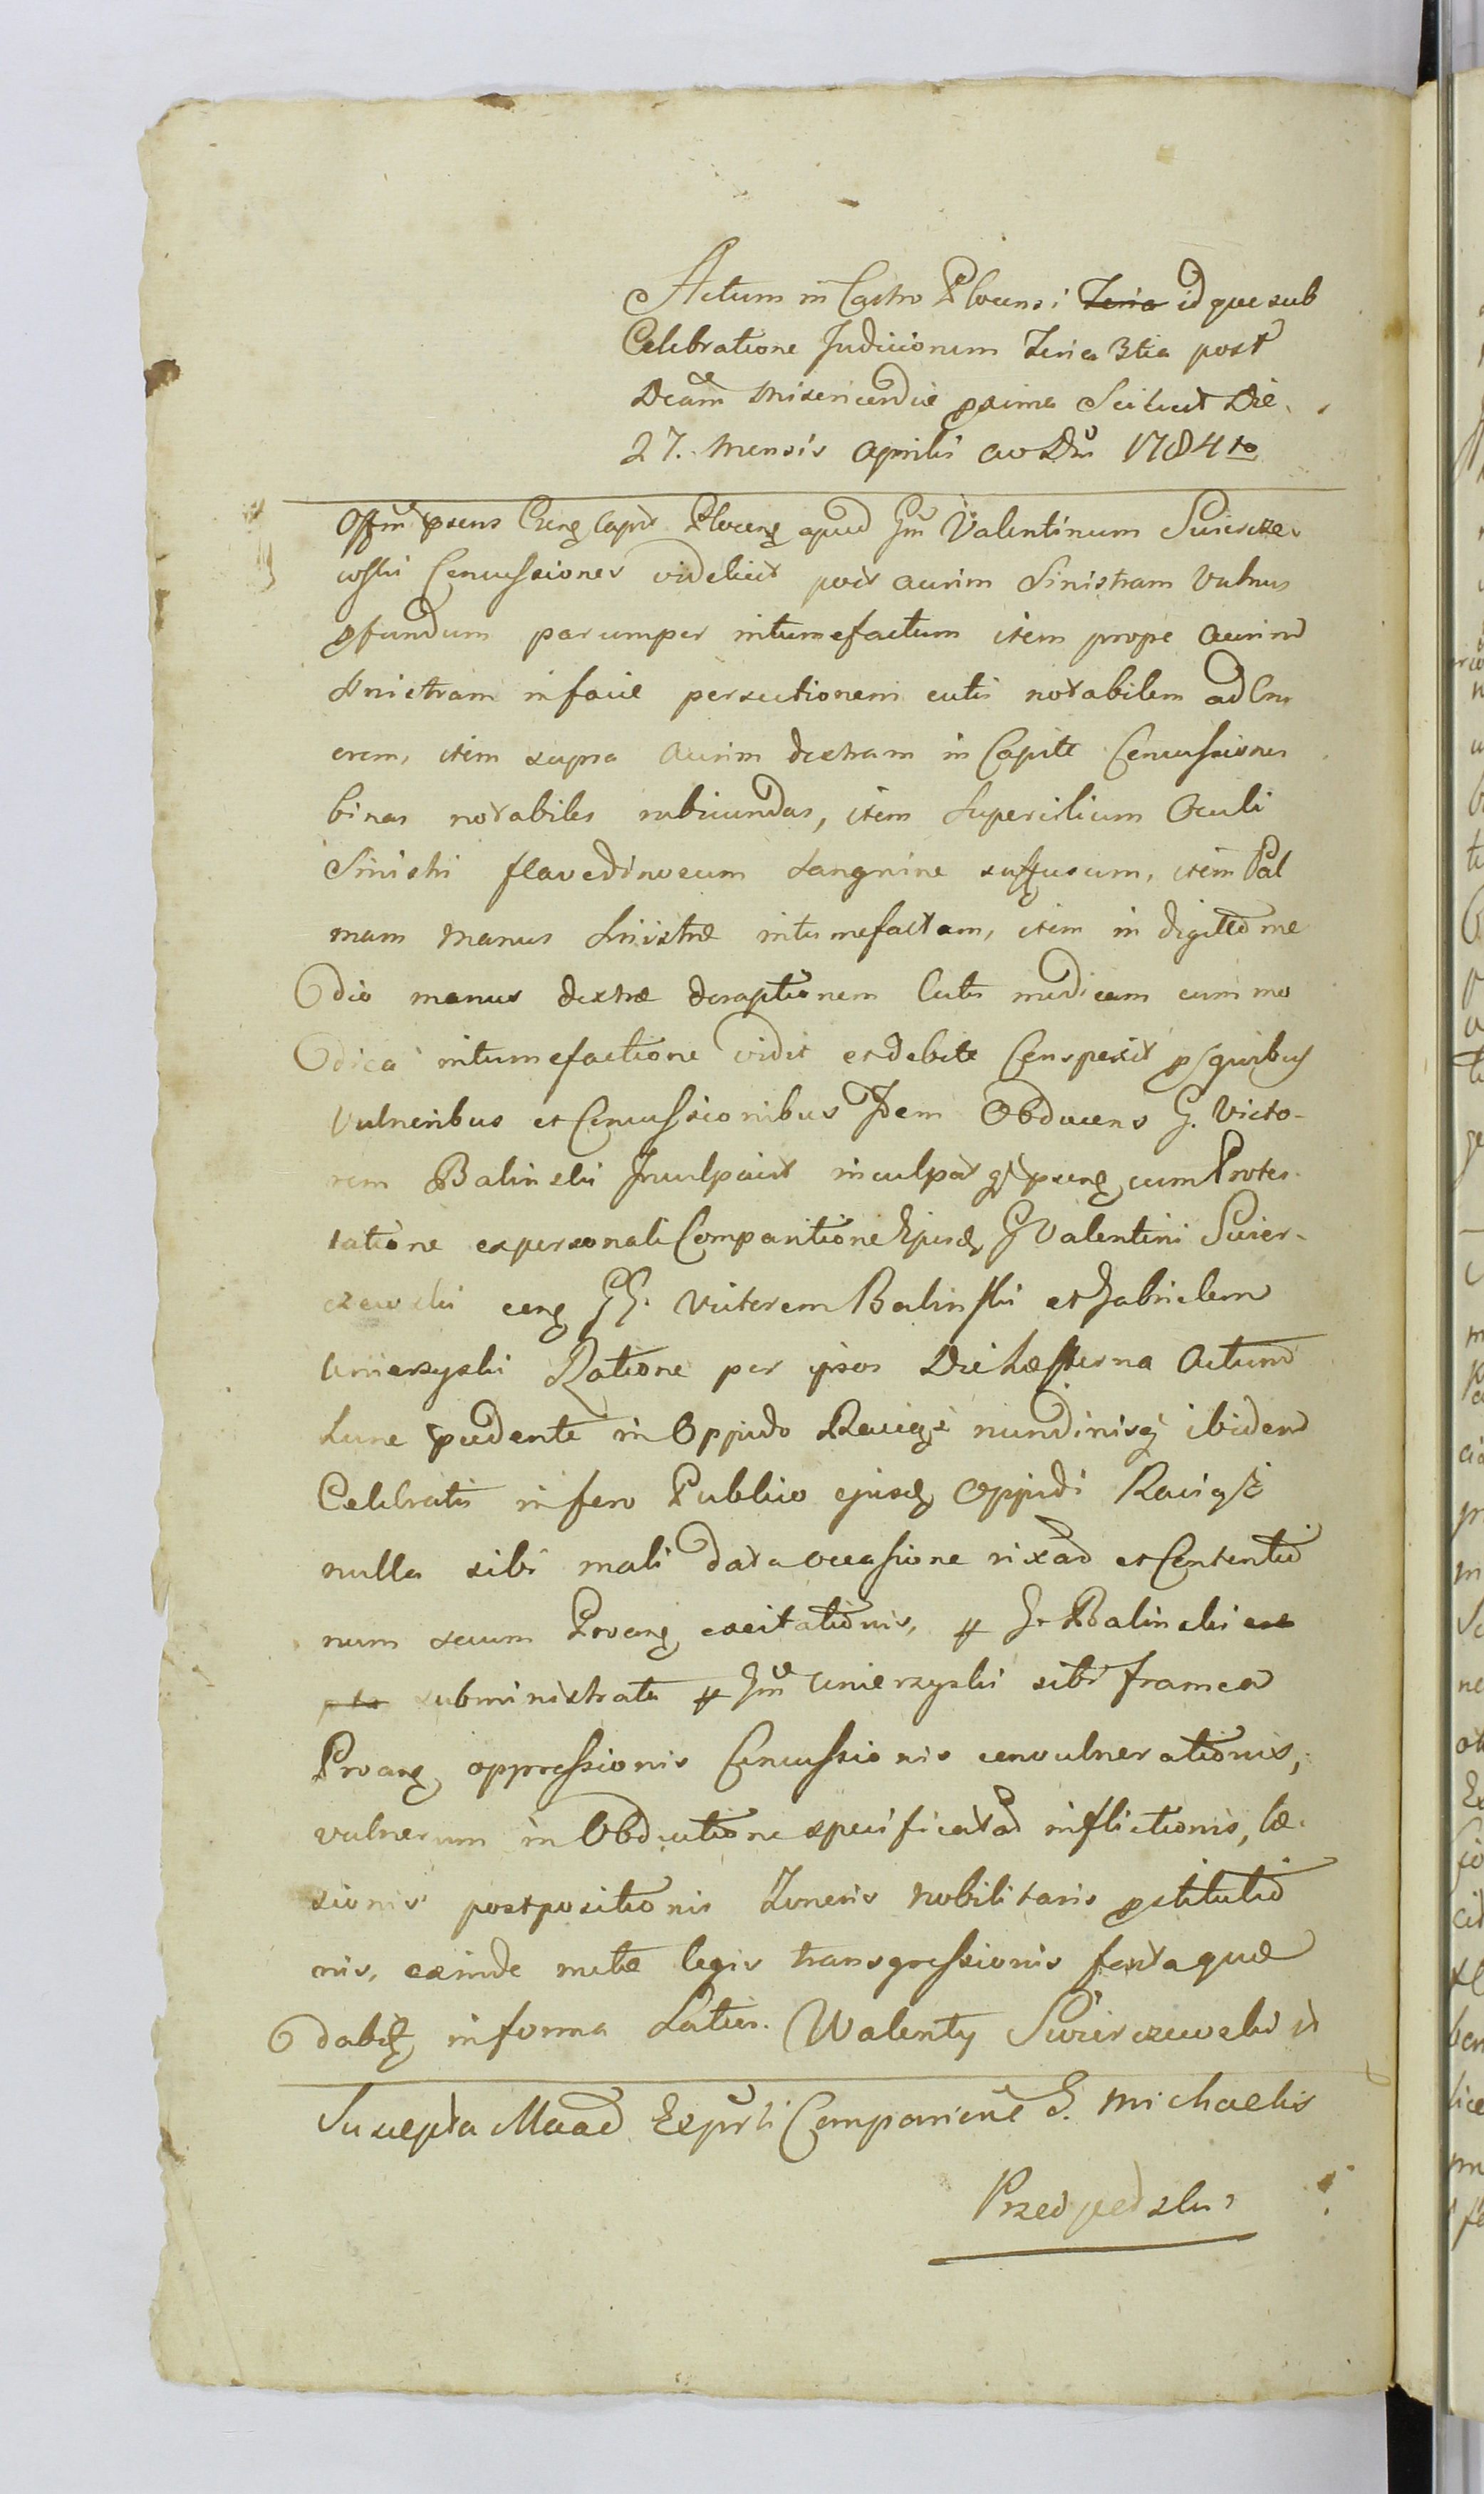 Actum in Castro Plocensi Feria idque sub
Celebratione Judiciorum Feria 3tia post
Dcam Misericordiæ pxima Scilicet Die
27. Mensis Aprilis ao Dni 1784to
Offm psens Crens Capit Plocens apud Gm Valentinum Swiercze-
wski Concussiones videlicet post aurim Sinistram Vulnus
pfundum parumper intumefactum item prope aurim
sinistram in facie persectionem cutis notabilem ad Cru
orem, item supra aurim dextram in Capite Concussiones
binas notabiles rubicundas, item Supercilium Oculi
Sinistri flavedinoeum sangvine suffusum, item Pal
mam Manus Sinistræ intumefactam, item in digito me
dio manus dextræ deraptionem Cutis modicam cum mo
dica intumefactione vidit et debite Conspexit p quibus
Vulneribus et Concussionibus Idem Obducens G. Victo-
rem Balinski Inculpavit inculpat qt psens cum Protes-
tatione ex personali Comparitione Ejusd G Valentini Swier-
czewski cens GG. Victorem Balinski et Gabrielem
Unierzyski Ratione per ipsos Die hæsterna Actum
Lunæ pcedente in Oppido Raciąż nundinisq ibidem
Celebratis in foro Publico ejusd Oppidi Raciąż
nulla sibi mali data occasione rixar et Contentio
num secum Proang excitationis, p G. Balinski
subministrata p Gm Unierzyski sibi framea
Proang oppressionis Concussionis convulnerationis,
vulnerum in Obductione specificatar inflictionis, læ-
sionis postpositionis Honoris Nobilitaris pstitutio
nis, exinde metæ legis transgressionis facta quæ
dabit in forma Latior. Walenty Swierczewski
Suscepta Mand Exprli Comparicne G. Michaelis
Przedpełski